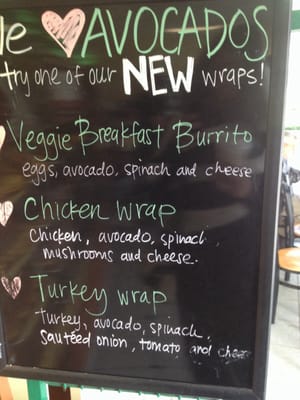 We AVOCADOS
try one of our NEW wraps!
Veggie Breakfast Burrito
eggs, avocado, spinach and cheese
Chicken wrap
Chicken, avocado, spinach,
mushrooms and cheese.
Turkey wrap
Turkey, avocado, spinach,
Sautéed onion, tomato and cheese